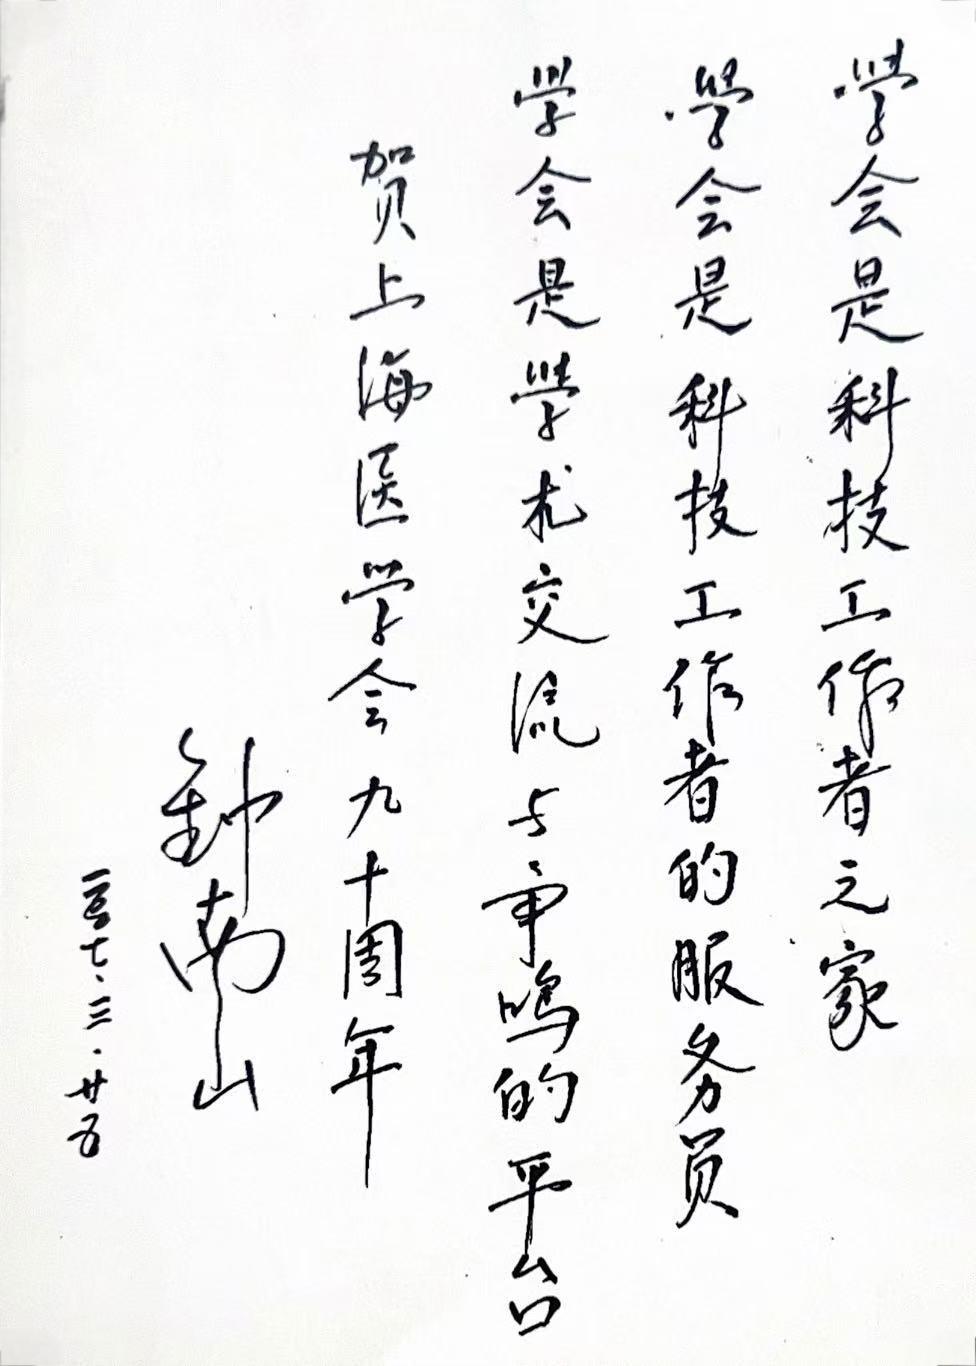 学会是科技工作者之家
学会是科技工作者的服务员
学会是学术交流与争鸣的平台
贺上海医学会九十周年
钟南山
二〇〇七.三.廿五